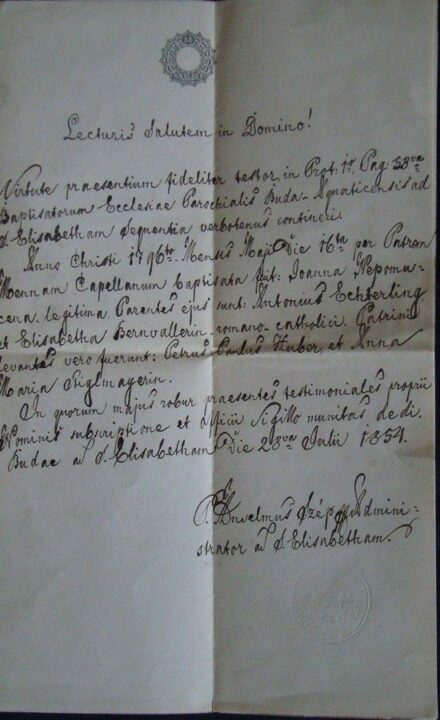 Lecturis Salutem in Domino!
Virtute praesentium fideliter testor, in Prot: 1o Pag: 38va
Baptisatorum Ecclesiae Parochialis Buda-Aquaticensis ad
S. Elisabetham Sequentia verbotenus contineri.
Anno Christi 1796to. Mensis Maji Die 16ta per Patrem
Mennam Capellanum baptisata fuit: Joanna Nepomu-
cena. legitima. Parentes ejus sunt: Antonius Echterling
et Elisabetha Bernvallerin, romano-catholici. Patrinis
levantes vero fuerunt: Petrus Paulus Huber, et Anna
Maria Siglmayerin.
In quorum majus robur praesentes testimoniales proprii
Nominis subscriptione et officii Sigillo munitas dedi.
Budae ad S. Elisabetham Die 28va Julii 1854.
P. Anselmus Szép Admini-
strator ad S. Elisabetham.